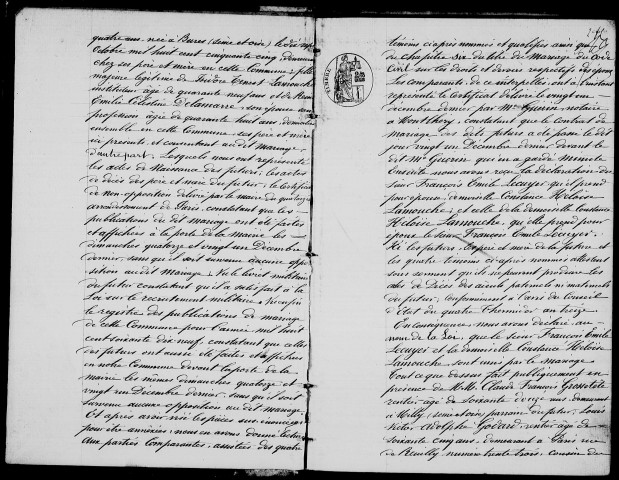 quatre ans née à Bures (Seine et Oise) le dix
Octobre mil huit cent cinquante cinq, demeurant
chez ses père et mère en cette Commune, fille
majeure légitime de Isidore Ernest Lamouche
instituteur âgé de quarante neuf ans et de
Emilie Célestine Delamarre, son épouse sans
profession âgée de quarante huit ans, demeurant
ensemble en cette Commune, ses père et mère
ici présents, et consentant au dit mariage
d'autre part. Lesquels nous ont représenté
les actes de Naissance des futurs, les actes
de décès des père et mère du futur, le certificat
de non-opposition délivré par la mairie du
arrondissement de Paris, constatant que les
publications de dit mariage ont été faites
et affichées à la porte de la mairie les
dimanches quatorze et vingt un Décembre
dernier, sans qu'il soit survenu aucune oppo-
sition au dit mariage. Vu le livret militaire
du futur constatant qu'il a satisfait à la
Loi sur le recrutement militaire. Vu enfin
le registre des publications de mariage
de cette Commune pour l'année mil huit
cent soixante dix neuf, constatant que celles
des futurs ont aussi été faites et affichées
en notre Commune devant la porte de la
mairie les mêmes dimanches quatorze et
vingt un Décembre dernier, sans qu'il soit
survenu aucune opposition au dit mariage.
Et après avoir les pièces sus-énoncées
pour être annexées, nous en avons donné lecture
aux parties Comparantes, assistées des quatre
témoins ci après nommés et qualifiés ainsi que
du chapitre six du titre du Mariage du Code
Civil sur les droits et devoirs respectifs des époux.
Les comparants, de ce interpellés, ont à l'instant
représenté le Certificat délivré le vingt un
décembre dernier par Me Guérin, notaire
à Montlhéry, constatant que le contrat de
mariage des dits futurs a été passé le dit
jour vingt un Décembre dernier, devant le
dit Me Guérin qui en a gardé minute
Ensuite nous avons reçu la déclaration du
sieur François Emile Lecuyer qu'il prend
pour épouse, demoiselle Constance Héloïse
Lamouche, et celle de la demoiselle Constance
Héloïse Lamouche, qu'elle prend pour
époux le sieur François Emile Lecuyer.
Et les futurs, les père et mère de la future et
les quatre témoins ci après nommés attestent
sous serment qu'ils ne peuvent produire les
actes de Décès des aïeuls paternels ni maternels
du futur, conformément à l'avis du Conseil
d'Etat du quatre Thermidor an treize
En conséquence, nous avons déclaré, au
nom de la Loi, que le sieur François Emile
Lecuyer et la demoiselle Constance Héloïse
Lamouche sont unis par le mariage
Tout ce que dessus fait publiquement en
présence de MM. Claude François Grosstête
rentier, âgé de soixante douze ans, demeurant
à Milly, Seine et Oise, parrain du futur, Louis
Victor Adolphe Godard, rentier, âgé de
soixante cinq ans, demeurant à Paris rue
de Reuilly, numéro trente trois, cousin du